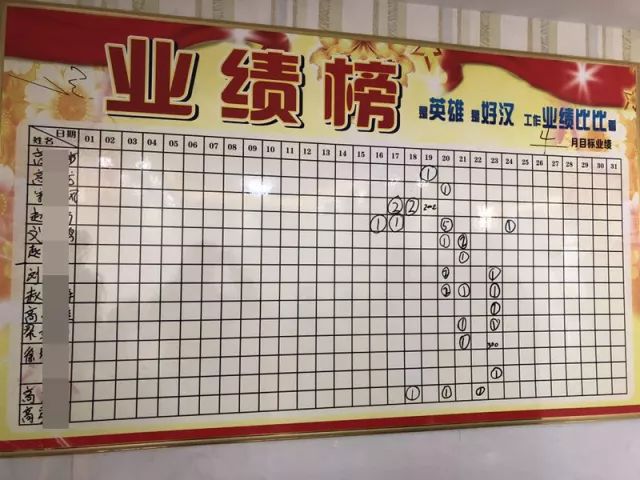 业绩榜
是英雄 是好汉 工作业绩比比看
4 月目标业绩
日期 姓名 01 02 03 04 05 06 07 08 09 10 11 12 13 14 15 16 17 18 19 20 21 22 23 24 25 26 27 28 29 30 31
①
①
② ②
赵 ① ① ⑤ ①
文 ① ②
赵 ①
刘 ② ①
赵 ② ① ①
高 ①
梁 ① ①
徐 ① 300
①
高 ① ① ①
高